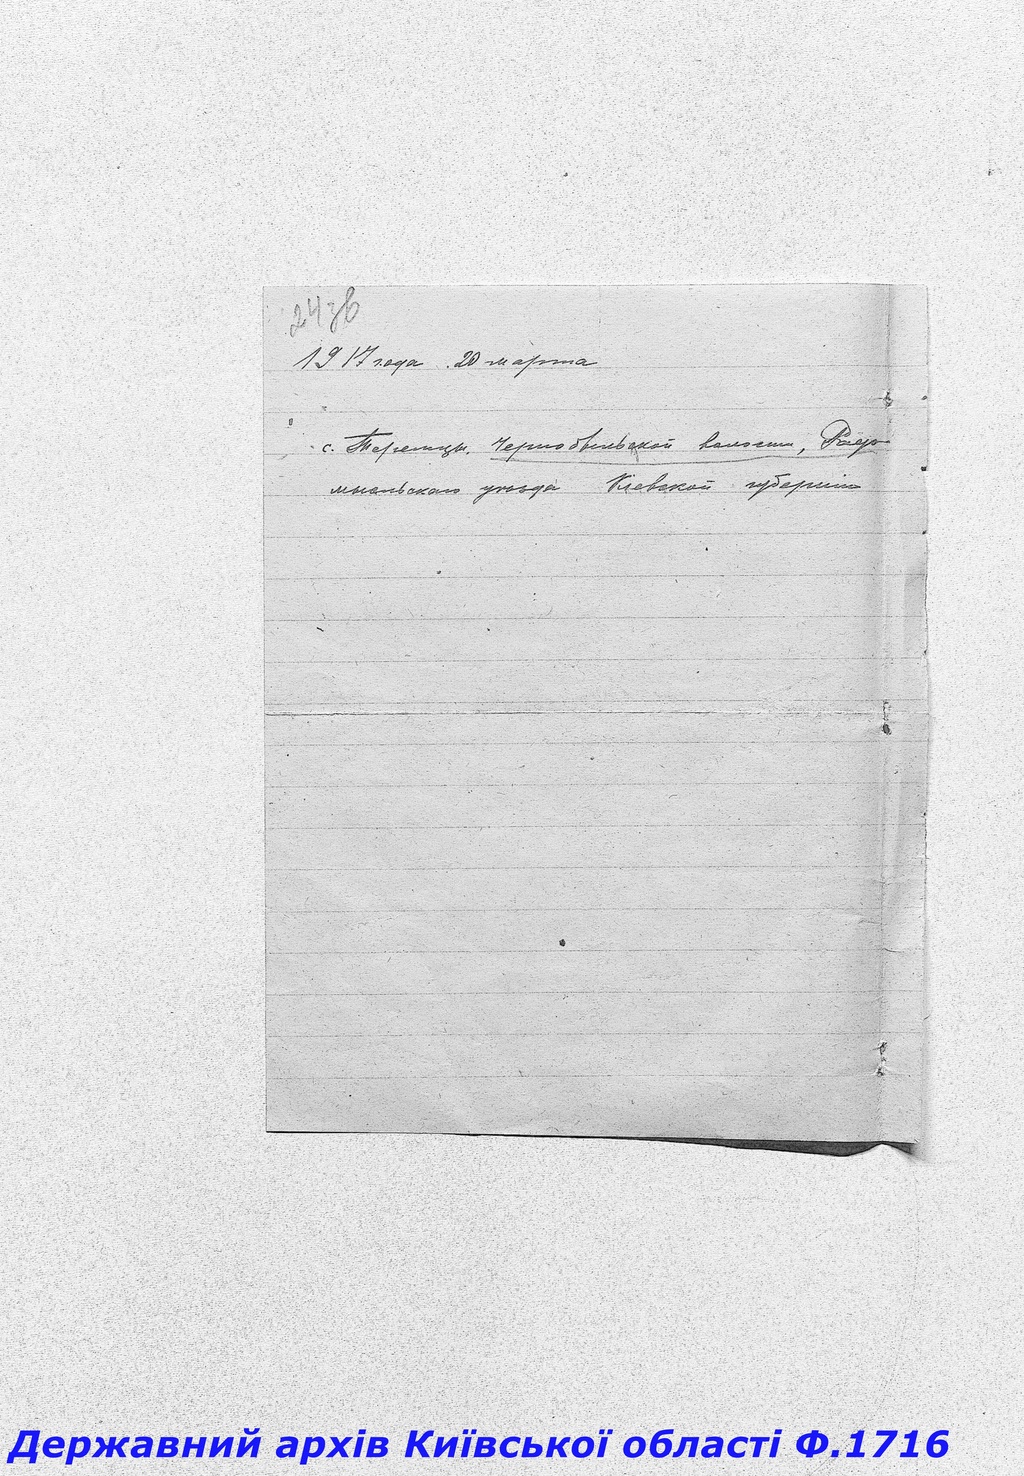 24зв
1917 года 20 марта
с. Теремцы, Чернобыльской волости, Радо
мысльскаго уѣзда Кіевской губерніи
Державний архів Київської області Ф.1716